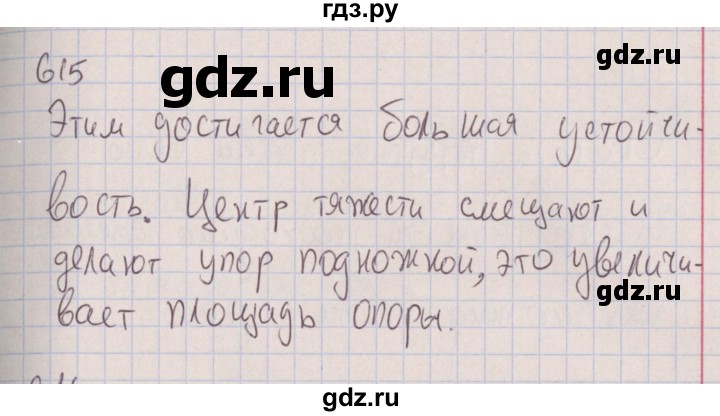 гдз.ру
gdz.ru
615
gdz.ru
Этим достигается большая устойчи-
вость. Центр тяжести смещают и
делают упор подножкой, это увеличи-
gdz.ru
вает площадь опоры.
gdz.ru